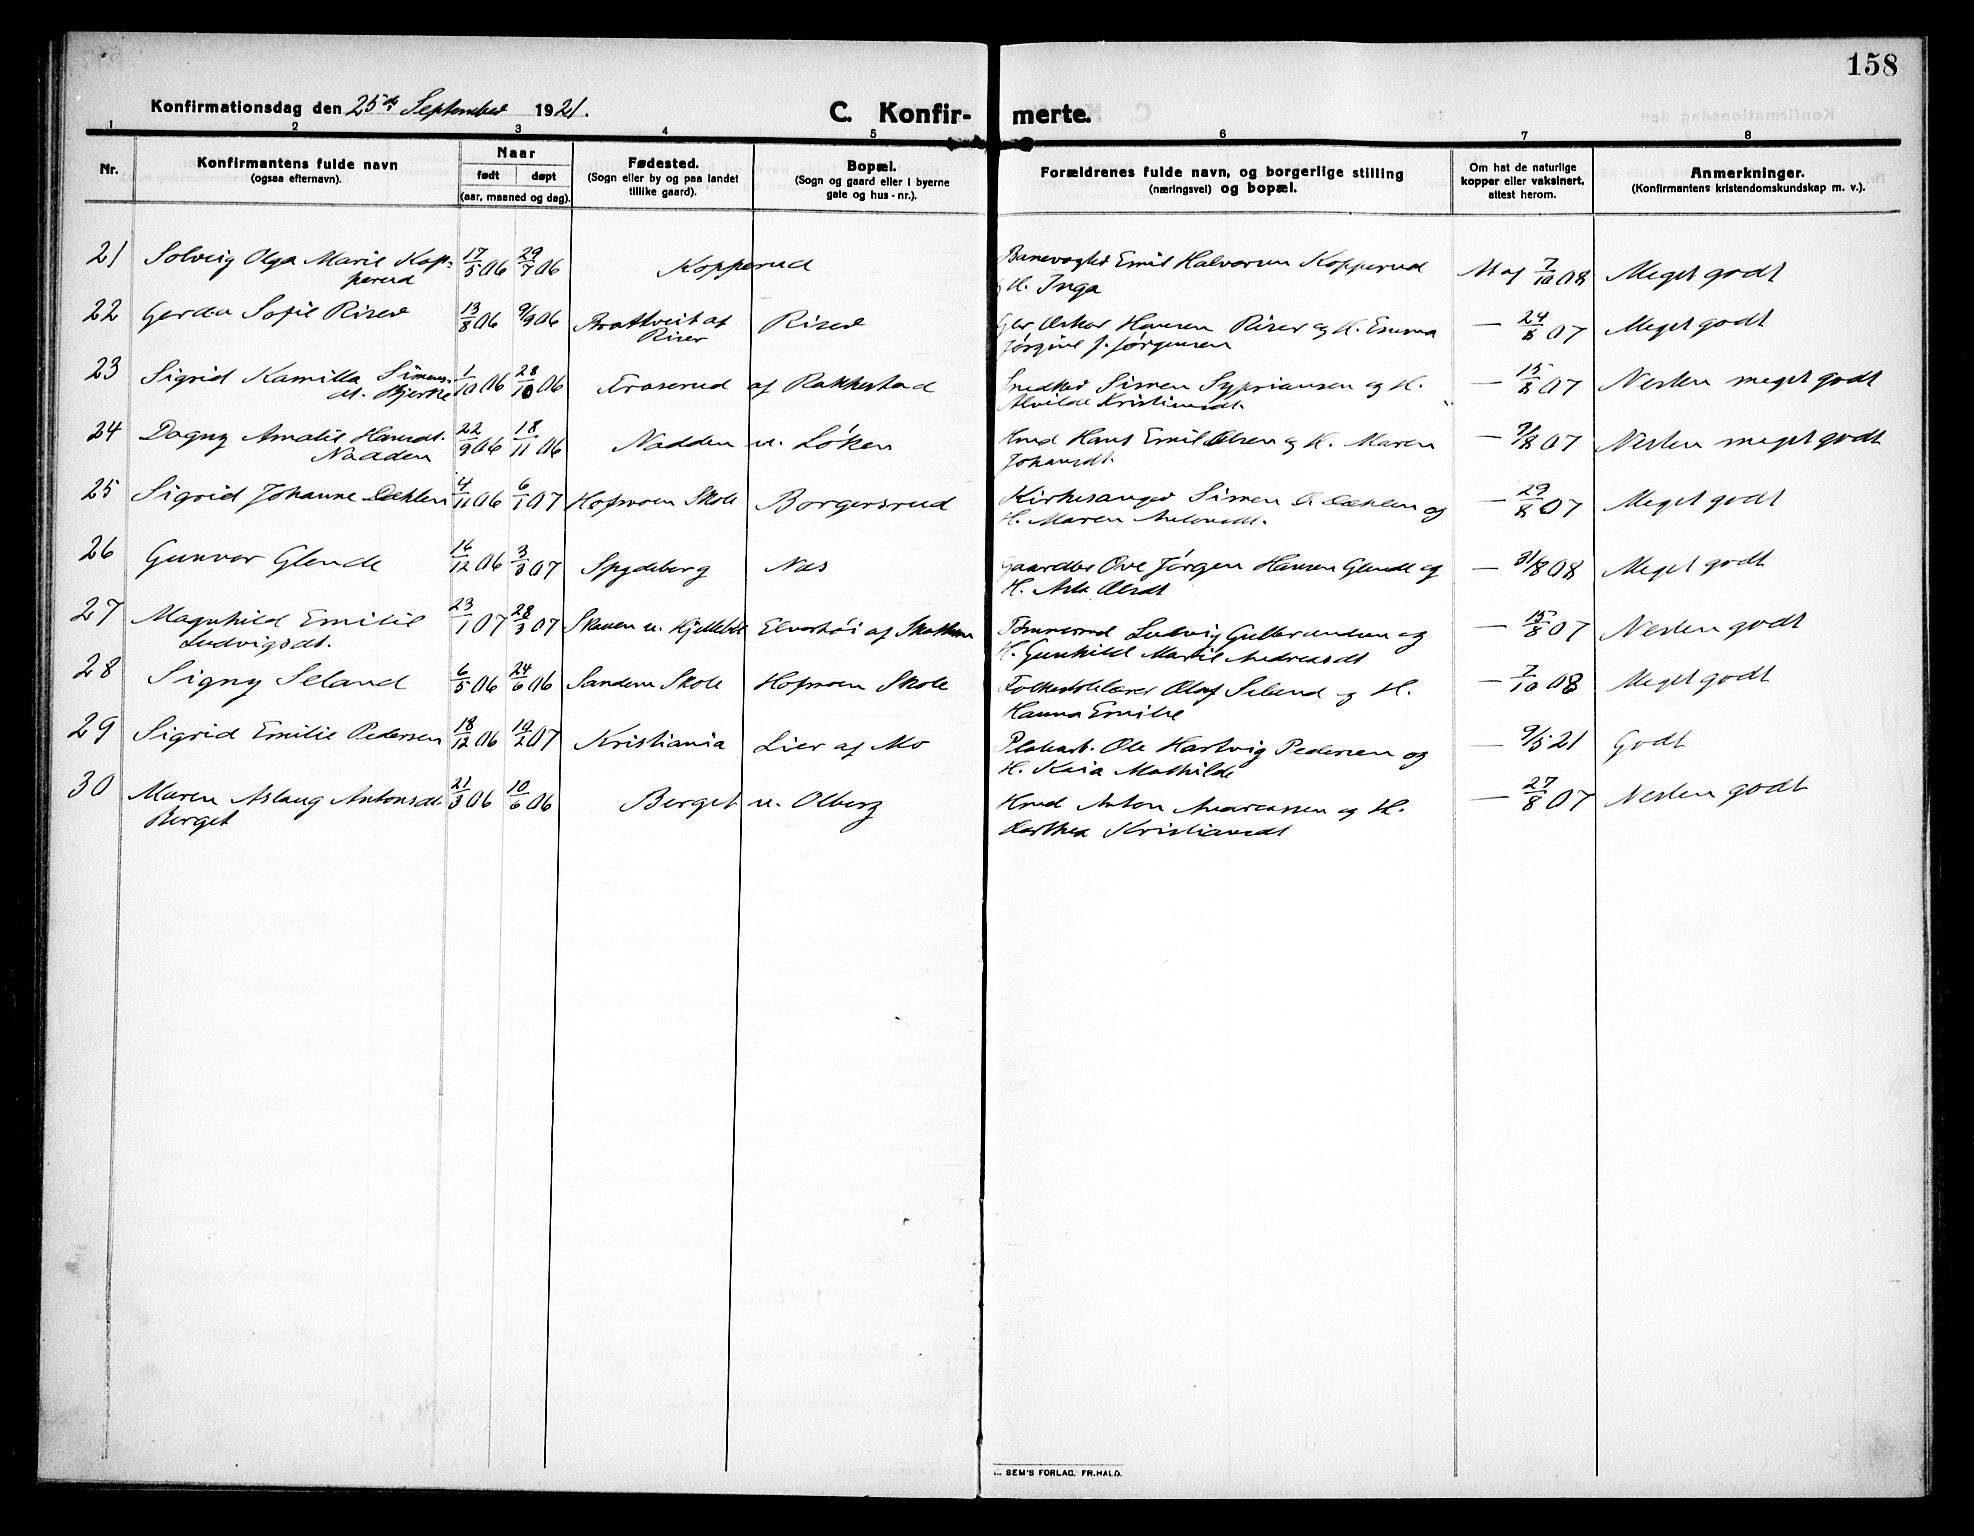 158
Konfirmationsdag den 25de September 1921.
C. Konfir- merte.
1 2 3 4 5 6 7 8
Nr.
Konfirmantens fulde navn
(ogsaa efternavn).
Naar
født døpt
(aar, maaned og dag).
Fødested.
(Sogn eller by og paa landet
tillike gaard).
Bopæl.
(Sogn og gaard eller i byerne
gate og hus-nr.).
Forældrenes fulde navn, og borgerlige stilling
(næringsvei) og bopæl.
Om hat de naturlige
kopper eller vaksinert,
attest herom.
Anmerkninger.
(Konfirmantens kristendomskundskap m. v.).
21 Solveig Olga Marie Kop- 17/5 06 29/7 06 Kopperud Banevogter Emil Halvorsen Kopperud At af 7/10 08 Meget godt
perud H. Inga
22 Gerda Sofie Riser 13/8 06 9/9 06 Brattveit af Riser Gbr Oskar Hansen Riser og H. Emma — 24/8 07 Meget godt
Riser Jørgine f. Jørgensen
23 Sigrid Kamilla Simens- 1/10 06 28/10 06 Fraserud af Rakkestad Snedker Simen Sypriansen og H. — 15/8 07 Nesten meget godt
dt. Bjerke Alvilde Kristiansdt.
24 Dagny Amalie Hansdt. 22/9 06 18/11 06 Nadden u. Løken Hmd Hans Emil Olsen og H. Maren — 9/8 07 Nesten meget godt
Nadden Johansdt.
25 Sigrid Johanne Dæhlen 4/11 06 6/1 07 Hofmoen Skole Borgersrud Kirkesanger Simen O. Dæhlen og — 29/8 07 Meget godt
H. Maren Antonsdt.
26 Gunvor Glende 16/12 06 3/3 07 Spydeberg Næs Gaardbr Ove Jørgen Hansen Glende og — 31/8 08 Meget godt
H. Olsdt
27 Magnhild Emilie 23/1 07 28/3 07 Skauen u. Elvershøi af Tømmermd Ludvig Gulbrandsen og — 15/8 07 Nesten godt
Ludvigsdt. H. Gunhild Marie Andreasdt
28 Signy Seland 6/5 06 24/6 06 Sandem Skole Hofmoen Skole Folkeskolelærer Olaf Seland og H. — 7/10 08 Meget godt
Hanna Emilie
29 Sigrid Emilie Pedersen 18/12 06 10/2 07 Kristiania Lier af Mo Ole Hartvig Pedersen og — 9/5 21 Godt
H. Kaia Mathilde
30 Maren Aslaug Antonsdt. 21/3 06 10/6 06 Berget u. Olberg Hmd Anton Andreassen og H. — 27/8 07 Nesten godt
Berget Dorthea Kristiansdt
SEM'S FORLAG, FR.HALD.